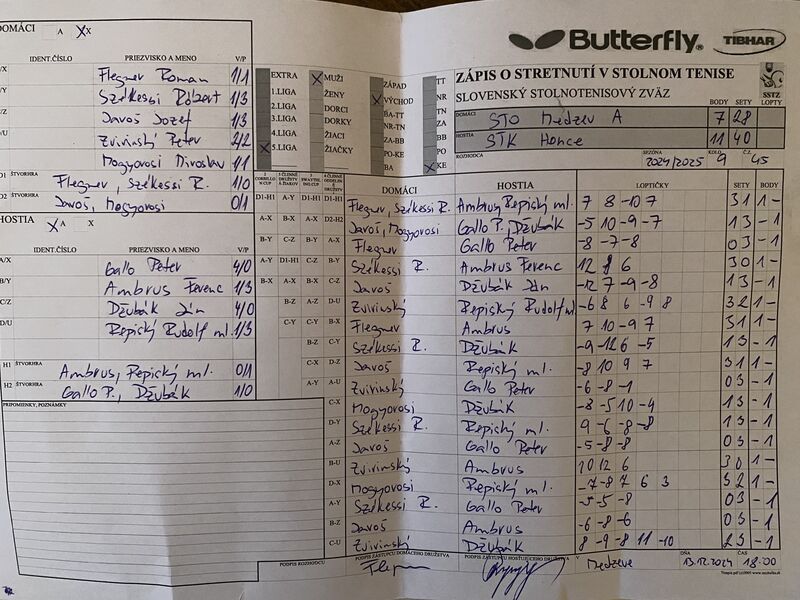 DOMÁCI A X X
IDENT.ČÍSLO PRIEZVISKO A MENO V/P
Flegner Roman 1/1
Székessi Róbert 1/3
Davoš Jozef 1/3
Zvirinský Peter 2/2
Mogyorosi Miroslav 1/1
D1 ŠTVORHRA Flegner, Székessi R. 1/0
D2 ŠTVORHRA Davoš, Mogyorosi 0/1
HOSTIA X A X
IDENT.ČÍSLO PRIEZVISKO A MENO V/P
A/X Gallo Peter 4/0
B/Y Ambrus Ferenc 1/3
C/Z Džubák Ján 4/0
D/U Repiský Rudolf ml. 1/3
H1 ŠTVORHRA Ambrus, Repický ml. 0/1
H2 ŠTVORHRA Gallo P., Džubák 1/0
PRIPOMIENKY, POZNÁMKY
Butterfly TIBHAR
EXTRA X MUŽI ZÁPAD TT
1.LIGA ŽENY X VÝCHOD NR
2.LIGA DORCI BA-TT ZA
3.LIGA DORKY NR-TN BB
4.LIGA ŽIACI ZA-BB PO
X 5.LIGA ŽIAČKY PO-KE X KE
ZÁPIS O STRETNUTÍ V STOLNOM TENISE
SLOVENSKÝ STOLNOTENISOVÝ ZVÄZ
SSTZ
BODY SETY LOPTY
DOMÁCI STO Medzev A 7 28
HOSTIA STK Honce 11 40
ROZHODCA SEZÓNA 2024/2025 KOLO 9 Č.Z. 45
DOMÁCI HOSTIA LOPTIČKY SETY BODY
D1-H1 A-Y D1-H1 D1-H1 Flegner, Székessi R. Ambrus, Repický ml. 7 8 -10 7 3 1 1 -
A-X B-X A-X D2-H2 Davoš, Mogyorosi Gallo P., Džubák -5 10 -9 -7 1 3 - 1
B-Y C-Z B-Y A-X Flegner Gallo Peter -8 -7 -8 0 3 - 1
A-Y D1-H1 C-Z B-Y Székessi R. Ambrus Ferenc 12 8 6 3 0 1 -
B-X A-X B-X C-Z Davoš Džubák Ján -12 7 -9 -8 1 3 - 1
B-Z A-Z D-U Zvirinský Repiský Rudolf ml. -6 8 6 -9 8 3 2 1 -
C-Y C-Y B-X Flegner Ambrus 7 10 -9 7 3 1 1 -
B-Z C-Y Székessi R. Džubák -9 -12 6 -5 1 3 - 1
C-X D-Z Davoš Repický ml. -8 10 9 7 3 1 1 -
A-Y A-U Zvirinský Gallo Peter -6 -8 -1 0 3 - 1
C-X Mogyorosi Džubák -8 -5 10 -4 1 3 - 1
D-Y Székessi R. Repický ml. 9 -6 -8 -8 1 3 - 1
A-Z Davoš Gallo Peter -5 -8 -8 0 3 - 1
B-U Zvirinský Ambrus 10 12 6 3 0 1 -
D-X Mogyorosi Repický ml. -7 -8 7 6 3 3 2 1 -
A-Y Székessi R. Gallo Peter -5 -5 -8 0 3 - 1
B-Z Davoš Ambrus -6 -8 -6 0 3 - 1
C-U Zvirinský Džubák 8 -9 -8 11 -10 2 3 - 1
PODPIS ROZHODCU PODPIS ZÁSTUPCU DOMÁCEHO DRUŽSTVA PODPIS ZÁSTUPCU HOSŤUJÚCEHO DRUŽSTVA V Medzeve DŇA 13.12.2024 ČAS 18:00